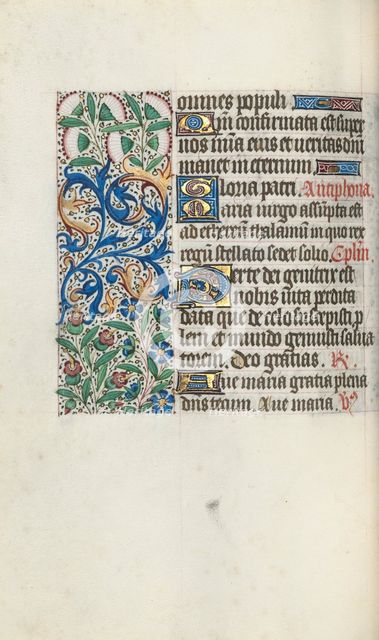 omnes populi
Qm̄ confirmata est super
nos mīa eius et ueritas dn̄i
manet in eternum
Gloria patri. Antiphona.
Maria uirgo assūpta est
ad ethereū thalamū in quo rex
regū stellato sedet solio. Cpl̄m
Perte dei genitrix est
nobis uita perdita
data que de celo suscepisti p̄
lem et mundo genuisti salua
torem. Deo gratias. R.
Aue maria gratia plena
dn̄s tecum. Aue maria. V̄s